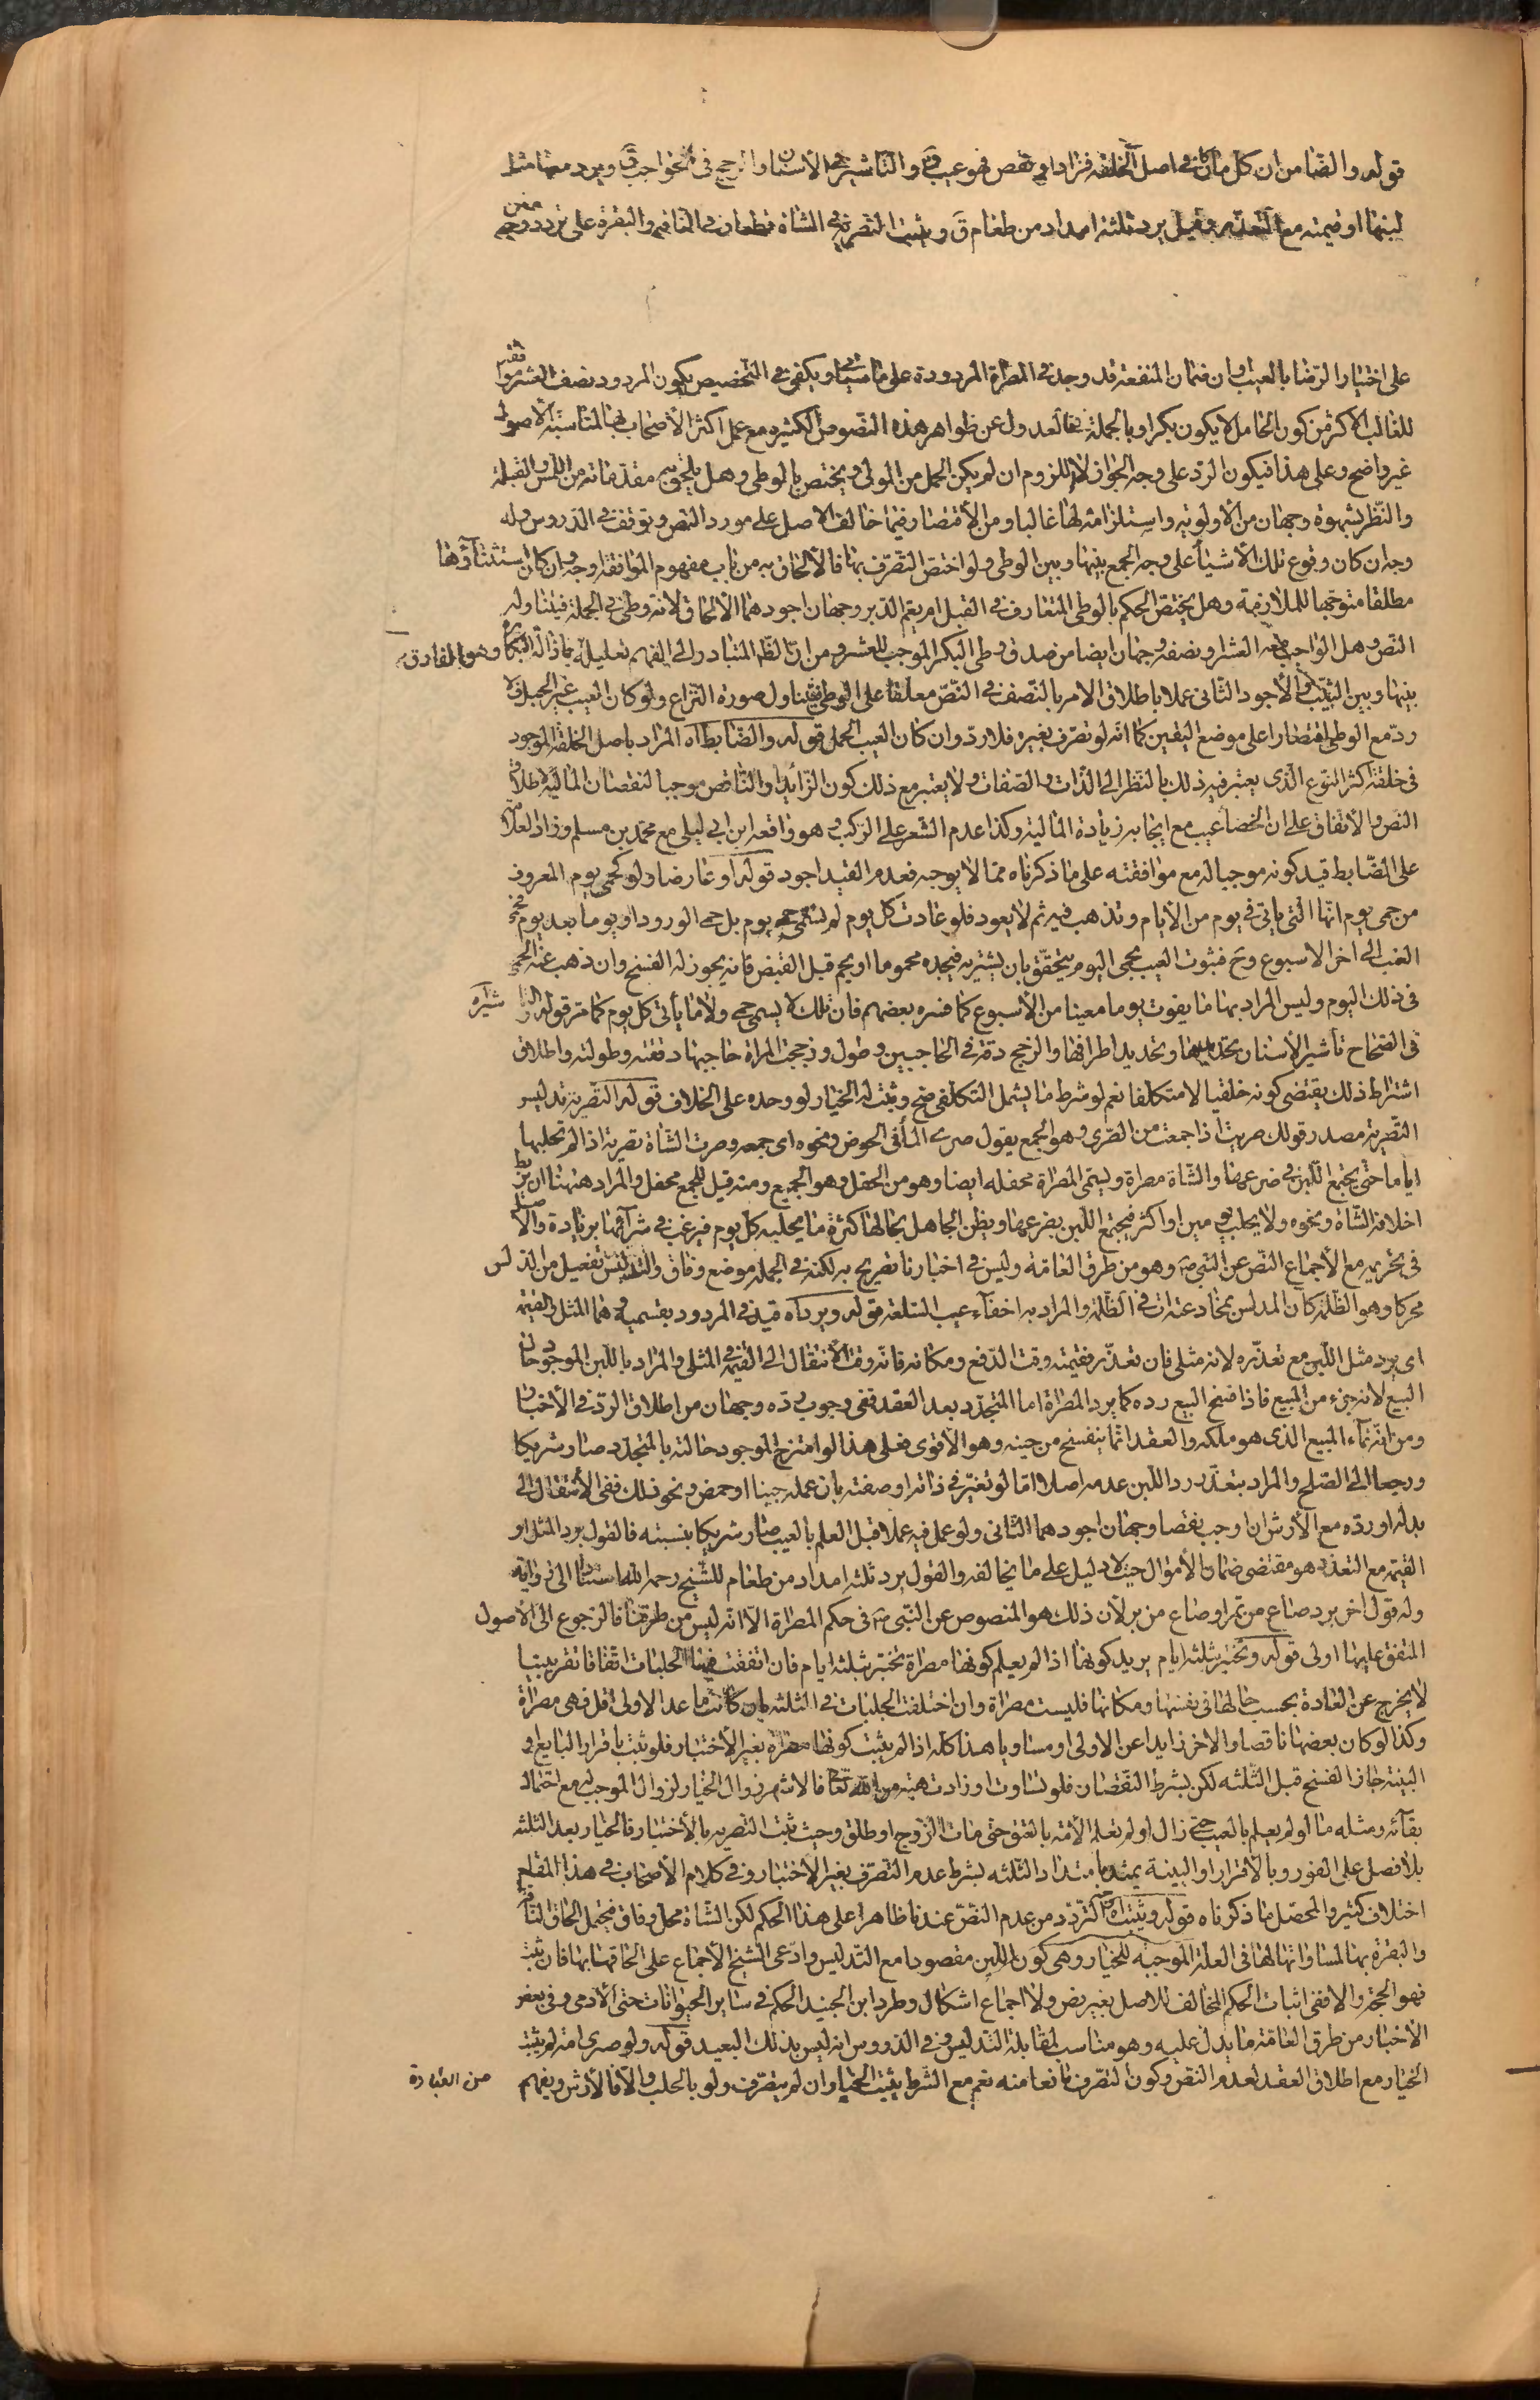 قوله والضا من ان كل ما كان في اصل الخلقة فزاد او نقص فهو عيب ق والتاشير في الأسنان والزجج في الحواجب ق ويرد معها مثل
لبنها او قيمته مع التعذر وقيل يرد ثلثة امداد من طعام ق وتثبت التصرية في الشاة قطعا وفي الناقة والبقرة على تردد
على اختيار الرضا بالعيب وان ضمان المنفعة قد وجد في المصراة المردودة على ما سيأتي ويكفي في التخصيص بكون المردود نصف العشر موافقته
للغالب الاكثر من كون الحامل لا يكون بكرا وبالجملة فالعدول عن ظواهر هذه النصوص الكثيره مع عمل اكثر الأصحاب بها لمناسبة الاصول
غير واضح وعلى هذا فيكون الرد على وجه الجواز لا اللزوم ان لم يكن الحمل من المولى ويختص بالوطى وهل يلحق به مقدماته من اللمس والقبلة
والنظر بشهوة وجهان من الأولوية واستلزامه لها غالبا ومن الأقتصار فيما خالف الاصل على مورد النص وتوقف في الدروس وله
وجه ان كان وقوع تلك الأشياء على وجه الجمع بينها وبين الوطى ولو اختص التصرف بها فالألحاق به من باب مفهوم الموافقة اوجه وان كان استثنآؤها
مطلقا متوجها للملازمة وهل يختص الحكم بالوطى المتعارف في القبل ام يعم الدبر وجهان اجودهما الألحاق لانه وطى في الجملة فيتناوله
النص وهل الواجب معه العشر او نصفه وجهان ايضا من صدق وطى البكر الموجب للعشر ومن ان الظاهر المتبادر الى الفهم تعليله باذالة البكارة وهو الفارق
بينها وبين الثيب والأجود الثانى عملا باطلاق الامر بالنصف في النص معلقا على الوطى فيتناول صورة النزاع ولو كان العيب غير الحبل فلا
رد مع الوطى اقتصارا على موضع اليقين كما انه لو تصرف بغيره فلا رد وان كان العيب الحمل قوله والضابط آه المراد باصل الخلقة الموجود
فى خلقة اكثر النوع الذى يعتبر فيه ذلك بالنظر الى الذات والصفات ولا يعتبر مع ذلك كون الزائد او الناقص موجبا لنقصان المالية لاطلاق
النص والاتفاق على ان الخصا عيب مع ايجابه زيادة المالية وكذا عدم الشعر على الركب وهو واقعة ابن ابى ليلى مع محمد بن مسلم وزاد العلامة
على الضابط قيد كونه موجبا له مع موافقته على ما ذكرناه مما لا يوجبه فعدم القيد اجود قوله او عارضا ولو كحمى يوم المعروف
من حمى يوم انها التى ياتى في يوم من الأيام وتذهب فيه ثم لا يعود فلو عادت كل يوم لم تسمى حمى يوم بل حمى الورود او يوما بعد يوم
الغب الى اخر الاسبوع وح فثبوت العيب بحمى اليوم يتحقق بان يشتريه فيجده محموما او يحم قبل القبض فانه يجوز له الفسخ وان ذهب عنه الحمى
فى ذلك اليوم وليس المراد بها ما يفوت يوما معينا من الأسبوع كما فسره بعضهم فان تلك لا يسمى حمى ولا ما يأتى كل يوم كما مر قوله والتا شيرآه
فى الصحاح تأشير الأسنان تحزيزها وتحديد اطرافها والزجج دقة في الحاجبين وطول وزججت المراة حاجبها دققته وطولته واطلاق
اشتراط ذلك يقتضى كونه خلقيا لا متكلفا نعم لو شرط ما يشمل التكلفى صح وثبت له الخيار لو وحده على الخلاف قوله التصرية تدليس
التصرية مصدر قولك صريت اذا جمعت من الصرى وهو الجمع يقول صرى المأ في الحوض ونحوه اى جمعه وصرت الشاة تصرية اذا لم تحلبها
اياما حتى يجتمع اللبن في ضرعها والشاة مصراة وليتمى المصراة محفله ايضا وهو من الحفل وهو الجميع ومنه قيل للجمع محفل والمراد ههنا ان يربط
اخلاف الشاة ونحوه ولا يحلب يومين او اكثر فيجتمع اللبن بضرعها ويظن الجاهل بحالها كثرة ما يحلبه كل يوم فيرغب في شرآئها بزيادة والأصل
في تحريمه مع الأجماع النص عن النبى ص وهو من طرق العامة وليس في اخبارنا تصريح به لكنه في الجملة موضع وفاق والتدليس تفعيل من الدلس
محركا وهو الظلمة كان المدلس بمخادعته ات في الظلمة والمراد به اخفآء عيب السلعة قوله ويرد آه قيد في المردود بقسميه وهما المثل والقيمة
اى يرد مثل اللبن مع تعذره لانه مثلى فان تعذر فقيمته وقت الدفع ومكانه فانه وقت الأنتقال الى القيمة في المثلى والمراد باللبن الموجود حال
البيع لانه جزء من المبيع فاذا فسخ البيع رده كما يرد المصراة اما المتجدد بعد العقد ففى وجوب رده وجهان من اطلاق الرد في الأخبار
ومن انه نمآء المبيع الذى هو ملكه والعقد انما ينفسخ من حينه وهو الأقوى فعلى هذا لو امتزج الموجود حالته بالمتجدد صار شريكا
ورجعا الى الصلح والمراد بتعذر رد اللبن عدمه اصلا اما لو تغير في ذاته او صفته بان عمله جبنا او حمض ونحو ذلك ففى الأنتقال الى
بدله او رده مع الأرش ان اوجب نقصا وجهان اجودهما الثانى ولو عمل فيه عملا قبل العلم بالعيب صار شريكا بنسبته فالقول برد المثل او
القيمة مع التعذر هو مقتضى ضمان الأموال حيث لا دليل على ما يخالفه والقول برد ثلثة امداد من طعام للشيخ رحمه الله استنادا الى رواية
وله قول اخر برد صاع من تمر او صاع من بر لأن ذلك هو المنصوص عن النبى ص في حكم المصراة الا انه ليس من طرقنا فالرجوع الى الأصول
المتفق عليها اولى قوله وتختبر بثلثة ايام يريد كونها اذا لم يعلم كونها مصراة تختبر بثلثة ايام فان اتفقت فيها الحلبات اتفاقا تقريبيا
لا يخرج عن العادة بحسب حالها في نفسها ومكانها فليست مصراة وان اختلفت الحلبات في الثلثة بان كانت ما عدا الاولى اقل فهى مصراة
وكذا لو كان بعضها ناقصا والاخر زايدا عن الاولى او مساويا هذا كله اذا لم يثبت كونها مصراة بغير الأختبار فلو ثبت باقرار البايع او
البينة جاز الفسخ قبل الثلثة لكن بشرط النقصان فلو تساوت او زادت هبة من الله تعا فالاشهر زوال الخيار لزوال الموجب له مع احتمال
بقآئه ومثله ما لو لم يعلم بالعيب حتى زال او لم تعلم الأمة بالعتق حتى مات الزوج او طلق وحيث ثبت التصرية بالأختبار فالخيار بعد الثلثه
بلا فصل على الفور وبالاقرار او البينة يمتد بامتداد الثلثه بشرط عدم التصرف بغير الأختبار وفى كلام الأصحاب في هذا المقام
اختلاف كثير والمحصل ما ذكرناه قوله وتثبت آه التردد من عدم النص عندنا ظاهرا على هذا الحكم لكن الشاة محل وفاق فيحتمل الحاق الناقة
والبقرة بها لمساواتها لها في العلة الموجبه للخيار وهى كون اللبن مقصودا مع التدليس وادعى الشيخ الأجماع على الحاقها بها فان ثبت
فهو الحجة والا ففى اثبات الحكم المخالف للاصل بغير نص ولا اجماع اشكال وطرد ابن الجنيد الحكم في ساير الحيوانات حتى الأدمى وفى بعض
الأخبار من طرق العامة ما يدل عليه وهو مناسب لمقابلة التدليس وفي الدروس انه ليس بذلك البعيد قوله ولو صرى امة لم يثبت
الخيار مع اطلاق العقد لعدم النص وكون التصرف مانعا منه نعم مع الشرط يثبت الخيار وان لم يتصرف ولو بالحلب والا فالأرش ويفهم
من العبارة